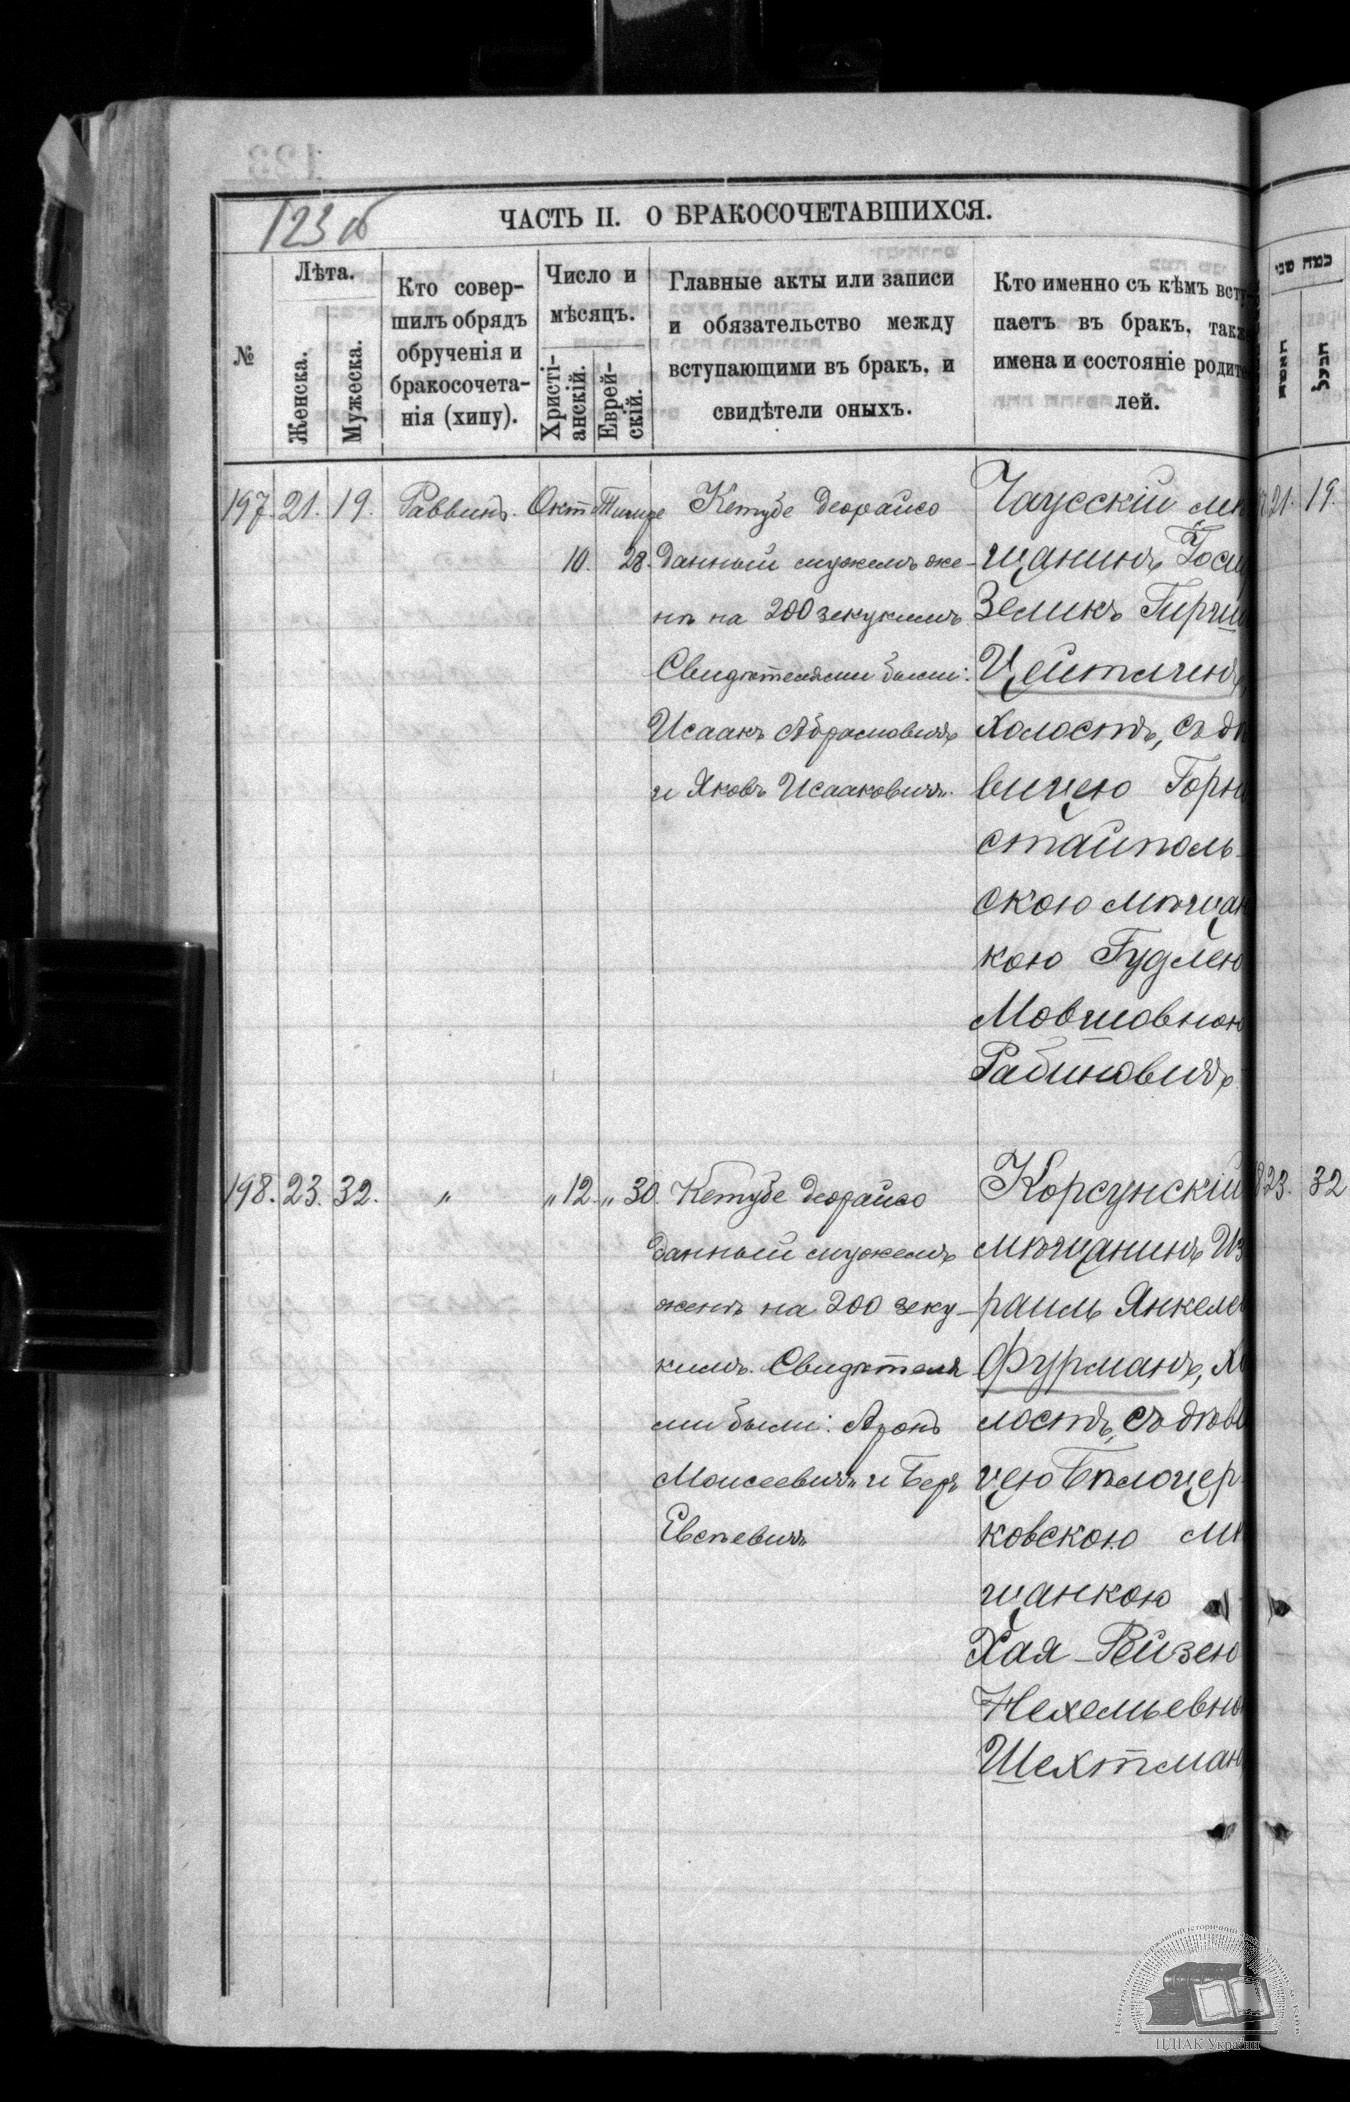 123 об
ЧАСТЬ II. О БРАКОСОЧЕТАВШИХСЯ.
№
Лѣта.
Женска.
Мужеска.
Кто совер-
шилъ обрядъ
обрученія и
бракосочета-
нія (хипу).
Число и
мѣсяцъ.
Христі-
анскій.
Еврей-
скій.
Главные акты или записи
и обязательство между
вступающими въ бракъ, и
свидѣтели оныхъ.
Кто именно съ кѣмъ всту-
паетъ въ бракъ, также
имена и состояніе родите
лей.
כמה שני
197. 21. 19. Раввинъ. Окт Тишре
10. 28.
Кетубе деорайсо
данный мужемъ же-
нѣ на 200 зекукимъ
Свидѣтелями были:
Исаакъ Абрамовичъ
и Яковъ Исааковичъ.
Чаусскій мѣ
щанинъ Іосі
Зеликъ Гирши
Цейтлинъ,
холостъ, съ дѣ
вицею Горно
стайполь-
скою мѣщан
кою Гудлею
Мовшовною
Рабиновичъ
21. 19.
198. 23. 32. " " 12. " 30.
Кетубе деорайсо
данный мужемъ
женѣ на 200 зеку-
кимъ. Свидѣтеля
ми были: Аронъ
Моисеевичъ и Беръ
Евсѣевичъ
Корсунскій
мѣщанинъ Из
раиль Янкеле
Фурманъ, хо
лостъ, съ дѣви
цею Бѣлоцер
ковскою мѣ
щанкою
Хая-Рейзею
Нехемьевно
Шехтман
23. 32
ЦДІАК України